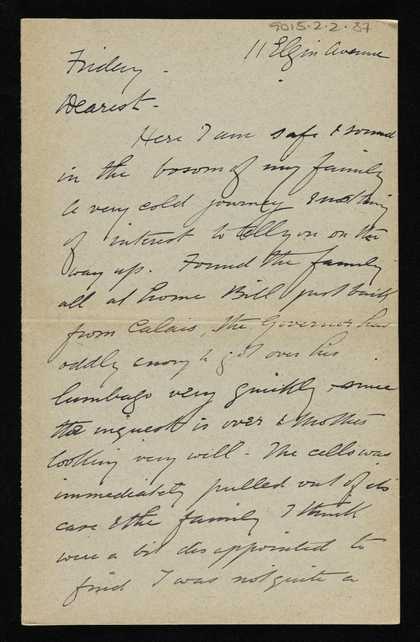 9015-2-2-37
11 Elgin Avenue
Friday -
Dearest -
Here I am safe & sound
in the bosom of my family
A very cold journey & nothing
of interest to tell you on the
way up. Found the family
all at home Bill just back
from Calais, the Governor has
oddly enough got over his
lumbago very quickly since
the inquest is over & Mother
looking very well - The cello was
immediately pulled out of its
case & the family I think
were a bit disappointed to
find I was not quite a